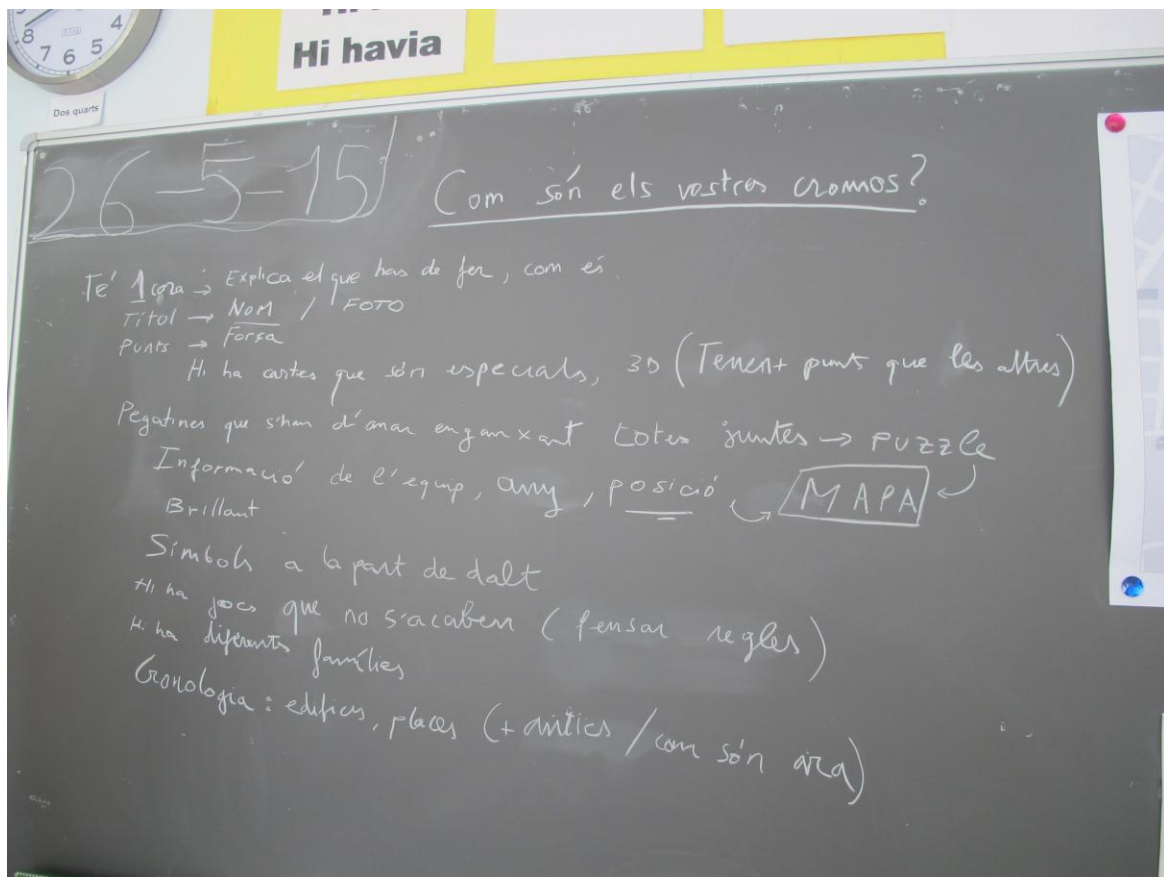 8 7 6 5 4
Hi havia
Dos quarts
26-5-15
Com són els vostres cromos?
Té 1 cara → Explica el que has de fer, com és.
Títol → NOM / FOTO
Punts → Força
Hi ha cartes que són especials, 3D (Tenen + punts que les altres)
Pegatines que s'han d'anar enganxant totes juntes → PUZZLE
Informació de l'equip, any, posició → MAPA
Brillant
Símbols a la part de dalt
Hi ha jocs que no s'acaben (pensar regles)
Hi ha diferents famílies
Cronologia: edificis, places (+ antics / com són ara)